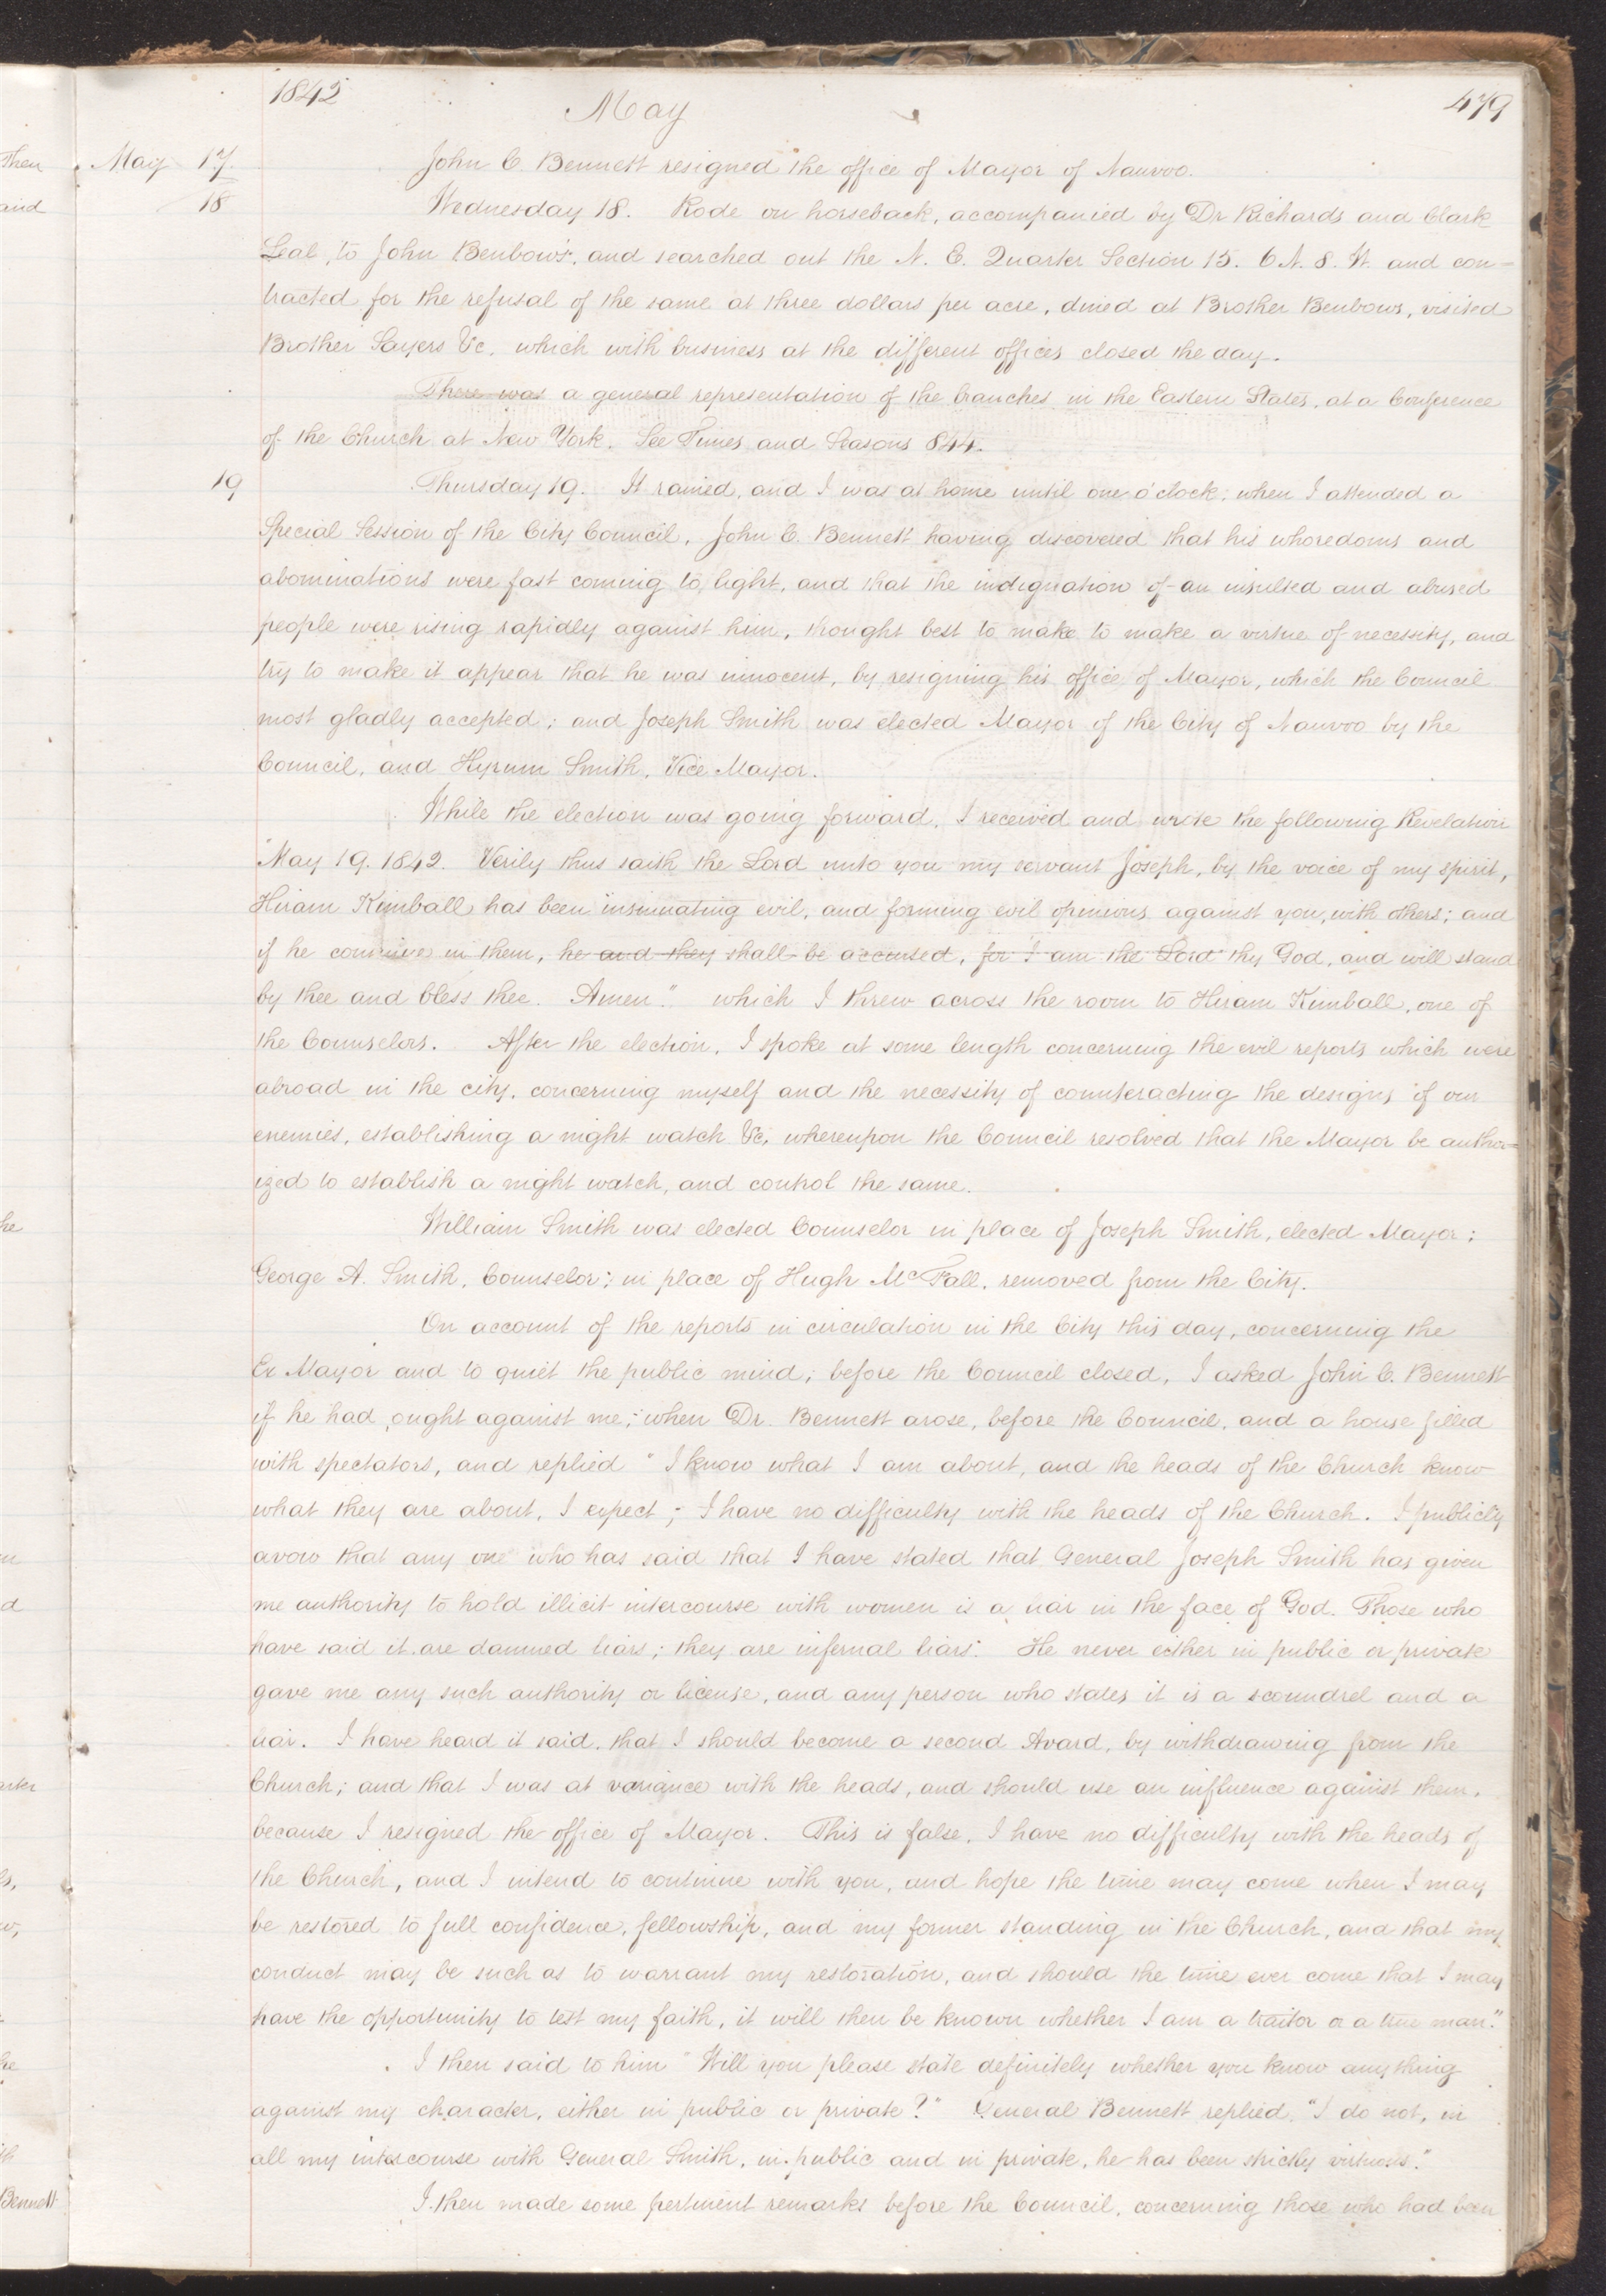 1842 May 479
Then May 17 John C. Bennett resigned the office of Mayor of Nauvoo.
and 18 Wednesday 18. Rode on horseback, accompanied by Dr Richards and Clark
Leal, to John Benbow's, and searched out the N. E. Quarter Section 15. 6 N. 8. W. and con=
tracted for the refusal of the same at three dollars per acre, dined at Brother Benbows, visited
Brother Sayers &c. which with business at the different offices closed the day.
There was a general representation of the branches in the Eastern States, at a Conference
of the Church at New York. See Times and Seasons 844.
19 Thursday 19. It rained, and I was at home until one o'clock; when I attended a
Special Session of the City Council. John C. Bennett having discovered that his whoredoms and
abominations were fast coming to light, and that the indignation of an insulted and abused
people were rising rapidly against him, thought best to make to make a virtue of necessity, and
try to make it appear that he was innocent, by resigning his office of Mayor, which the Council
most gladly accepted; and Joseph Smith was elected Mayor of the City of Nauvoo by the
Council, and Hyrum Smith, Vice Mayor.
While the election was going forward, I received and wrote the following Revelation
"May 19. 1842. Verily thus saith the Lord unto you my servant Joseph, by the voice of my spirit,
Hiram Kimball has been insinuating evil, and forming evil opinions against you, with others; and
if he continue in them, he and they shall be accursed, for I am the Lord thy God, and will stand
by thee and bless thee. Amen." which I threw across the room to Hiram Kimball, one of
the Counselors. After the election, I spoke at some length concerning the evil reports which were
abroad in the city, concerning myself and the necessity of counteracting the designs of our
enemies, establishing a night watch &c. whereupon the Council resolved that the Mayor be author=
ized to establish a night watch, and control the same.
he William Smith was elected Counselor in place of Joseph Smith, elected Mayor;
George A. Smith, Counselor; in place of Hugh McFall, removed from the City.
On account of the reports in circulation in the City this day, concerning the
Ex Mayor and to quiet the public mind; before the Council closed, I asked John C. Bennett
if he had ought against me; when Dr. Bennett arose, before the Council, and a house filled
with spectators, and replied "I know what I am about, and the heads of the Church know
what they are about, I expect; I have no difficulty with the heads of the Church. I publicly
avow that any one who has said that I have stated that General Joseph Smith has given
d me authority to hold illicit intercourse with women is a liar in the face of God. Those who
have said it are damned liars; they are infernal liars. He never either in public or private
gave me any such authority or license, and any person who states it is a scoundrel and a
liar. I have heard it said that I should become a second Avard, by withdrawing from the
Church; and that I was at variance with the heads, and should use an influence against them,
because I resigned the office of Mayor. This is false, I have no difficulty with the heads of
the Church, and I intend to continue with you, and hope the time may come when I may
be restored to full confidence, fellowship, and my former standing in the Church, and that my
conduct may be such as to warrant my restoration, and should the time ever come that I may
have the opportunity to test my faith, it will then be known whether I am a traitor or a true man."
he I then said to him "Will you please state definitely whether you know anything
against my character, either in public or private?" General Bennett replied, "I do not, in
all my intercourse with General Smith, in public and in private, he has been strictly virtuous."
Bennett I then made some pertinent remarks before the Council, concerning those who had been